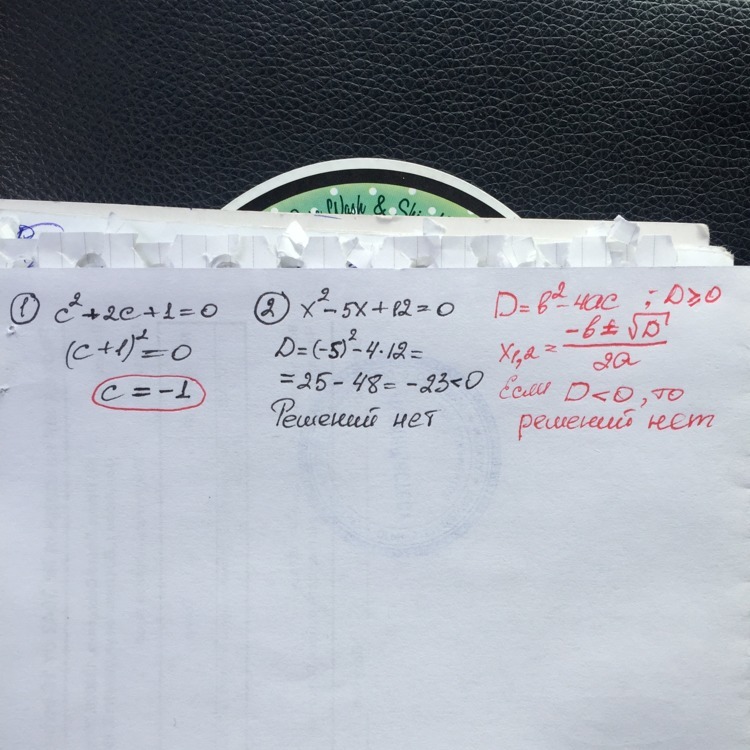 Wash & Shi
① c²+2c+1=0
(c+1)²=0
c = -1
② x²-5x+12=0
D=(-5)²-4·12=
=25-48=-23<0
Решений нет
D=b²-4ac ; D≥0
x₁,₂=(-b±√D)/2a
Если D<0, то
решений нет